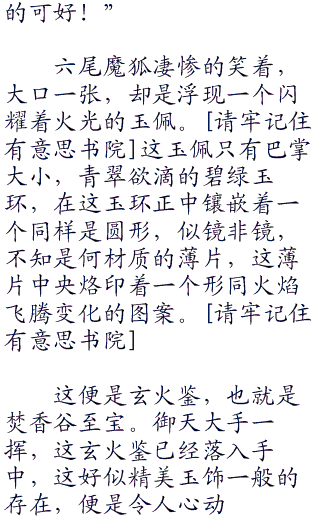 的可好！”
六尾魔狐凄惨的笑着，
大口一张，却是浮现一个闪
耀着火光的玉佩。[请牢记住
有意思书院]这玉佩只有巴掌
大小，青翠欲滴的碧绿玉
环，在这玉环正中镶嵌着一
个同样是圆形，似镜非镜，
不知是何材质的薄片，这薄
片中央烙印着一个形同火焰
飞腾变化的图案。[请牢记住
有意思书院]
这便是玄火鉴，也就是
焚香谷至宝。御天大手一
挥，这玄火鉴已经落入手
中，这好似精美玉饰一般的
存在，便是令人心动